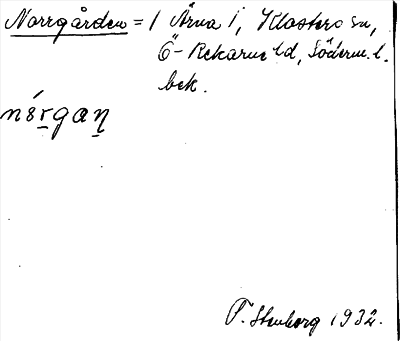 Norrgården = 1 Ärna 1, Klosters sn,
Ö-Rekarne hd, Söderm. l.
bek.
nó̈rgaɳ
F. Stenborg 1932.